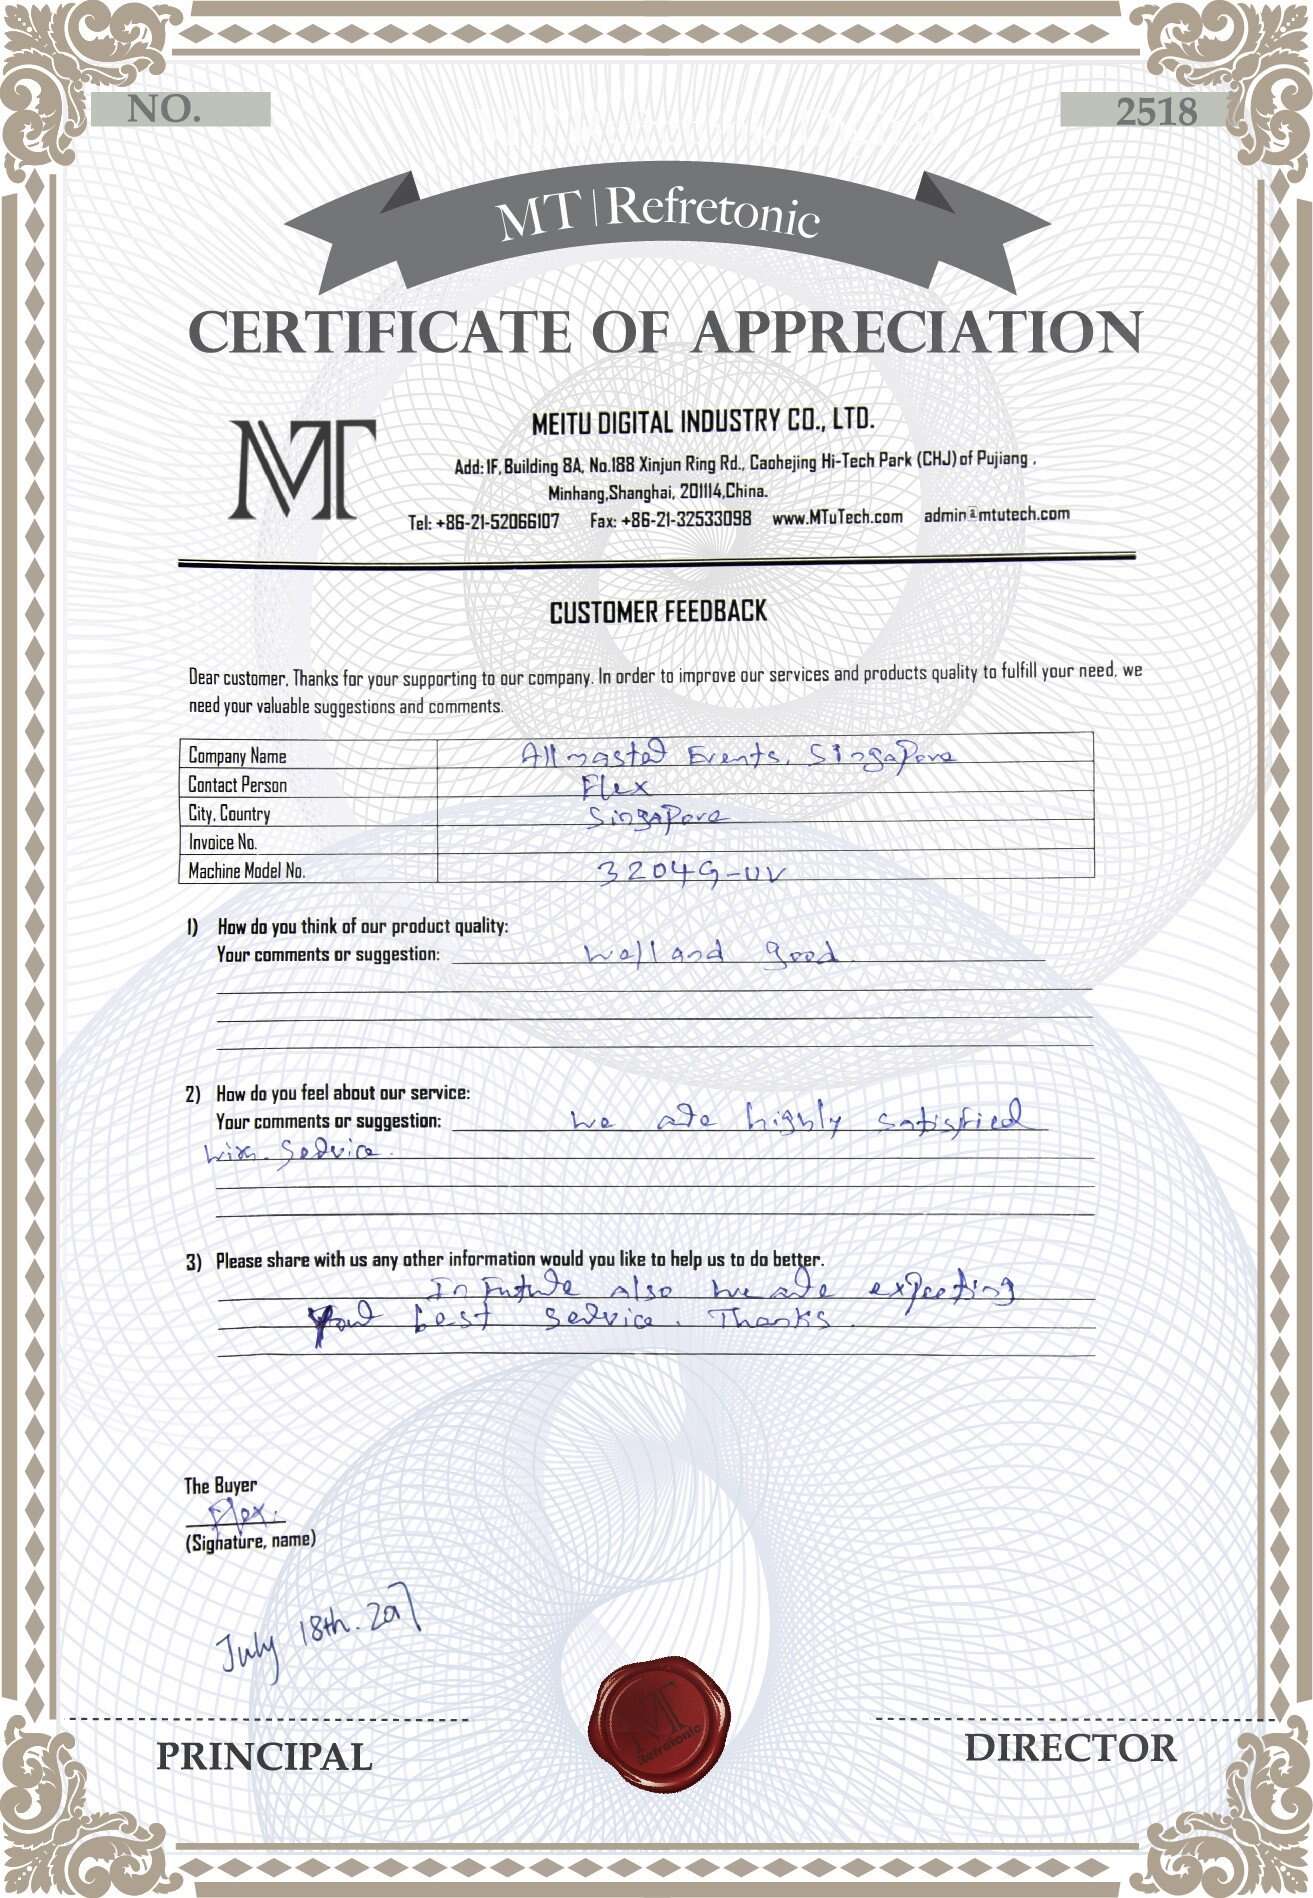 NO.
2518
MT | Refretonic
CERTIFICATE OF APPRECIATION
MT
MEITU DIGITAL INDUSTRY CO., LTD.
Add: 1F, Building 8A, No.188 Xinjun Ring Rd., Caohejing Hi-Tech Park (CHJ) of Pujiang ,
Minhang,Shanghai, 201114,China.
Tel: +86-21-52066107 Fax: +86-21-32533098 www.MTuTech.com admin@mtutech.com
CUSTOMER FEEDBACK
Dear customer, Thanks for your supporting to our company. In order to improve our services and products quality to fulfill your need, we
need your valuable suggestions and comments.
Company Name Events, Singapore
Contact Person Flex
City, Country Singapore
Invoice No.
Machine Model No. 3204G-UV
1) How do you think of our product quality:
Your comments or suggestion: Well and good.
2) How do you feel about our service:
Your comments or suggestion: We are highly satisfied
Service.
3) Please share with us any other information would you like to help us to do better.
In Future also we are expecting
Your best service. Thanks.
The Buyer
Flex.
(Signature, name)
July 18th. 2017
MT
Refretonic
PRINCIPAL
DIRECTOR